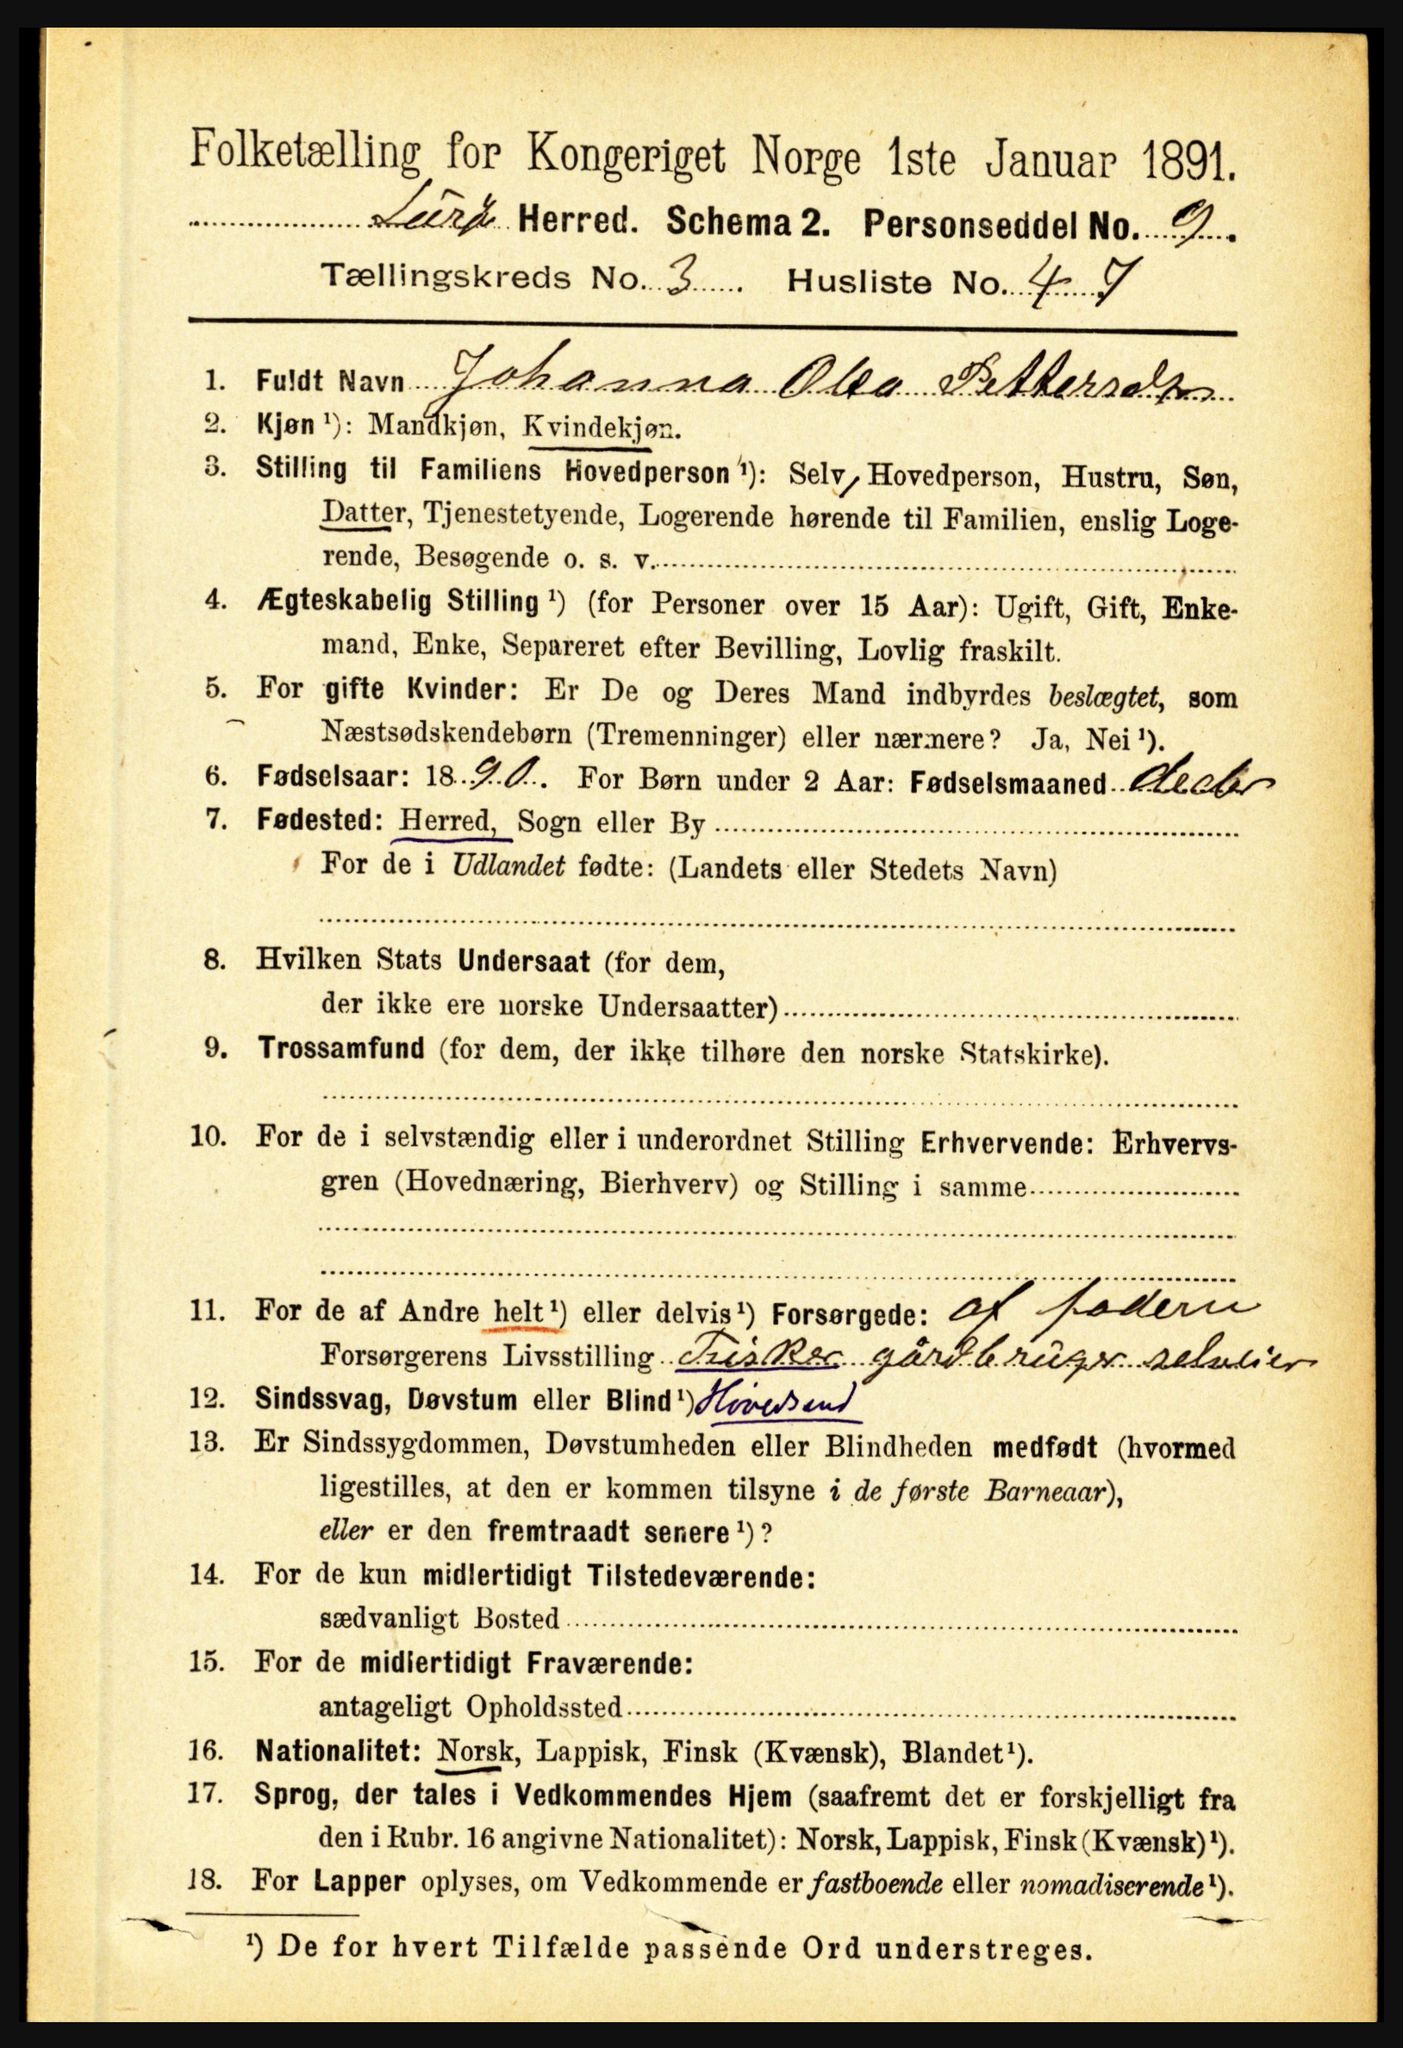 Folketælling for Kongeriget Norge 1ste Januar 1891.
Lurø Herred. Schema 2. Personseddel No. 9.
Tællingskreds No. 3. Husliste No. 47
1. Fuldt Navn Johanna Olea Pettersdtr
2. Kjøn ¹): Mandkjøn, Kvindekjøn.
3. Stilling til Familiens Hovedperson ¹): Selv Hovedperson, Hustru, Søn,
Datter, Tjenestetyende, Logerende hørende til Familien, enslig Loge-
rende, Besøgende o. s. v.
4. Ægteskabelig Stilling ¹) (for Personer over 15 Aar): Ugift, Gift, Enke-
mand, Enke, Separeret efter Bevilling, Lovlig fraskilt.
5. For gifte Kvinder: Er De og Deres Mand indbyrdes beslægtet, som
Næstsødskendebørn (Tremenninger) eller nærmere? Ja, Nei ¹).
6. Fødselsaar: 1890. For Børn under 2 Aar: Fødselsmaaned decbr
7. Fødested: Herred, Sogn eller By
For de i Udlandet fødte: (Landets eller Stedets Navn)
8. Hvilken Stats Undersaat (for dem,
der ikke ere norske Undersaatter)
9. Trossamfund (for dem, der ikke tilhøre den norske Statskirke).
10. For de i selvstændig eller i underordnet Stilling Erhvervende: Erhvervs-
gren (Hovednæring, Bierhverv) og Stilling i samme
11. For de af Andre helt ¹) eller delvis ¹) Forsørgede: af faderu
Forsørgerens Livsstilling Fisker gårdbruger selveier
12. Sindssvag, Døvstum eller Blind ¹)
13. Er Sindssygdommen, Døvstumheden eller Blindheden medfødt (hvormed
ligestilles, at den er kommen tilsyne i de første Barneaar),
eller er den fremtraadt senere ¹)?
14. For de kun midlertidigt Tilstedeværende:
sædvanligt Bosted
15. For de midlertidigt Fraværende:
antageligt Opholdssted
16. Nationalitet: Norsk, Lappisk, Finsk (Kvænsk), Blandet ¹).
17. Sprog, der tales i Vedkommendes Hjem (saafremt det er forskjelligt fra
den i Rubr. 16 angivne Nationalitet): Norsk, Lappisk, Finsk (Kvænsk) ¹).
18. For Lapper oplyses, om Vedkommende er fastboende eller nomadiserende ¹).
¹) De for hvert Tilfælde passende Ord understreges.